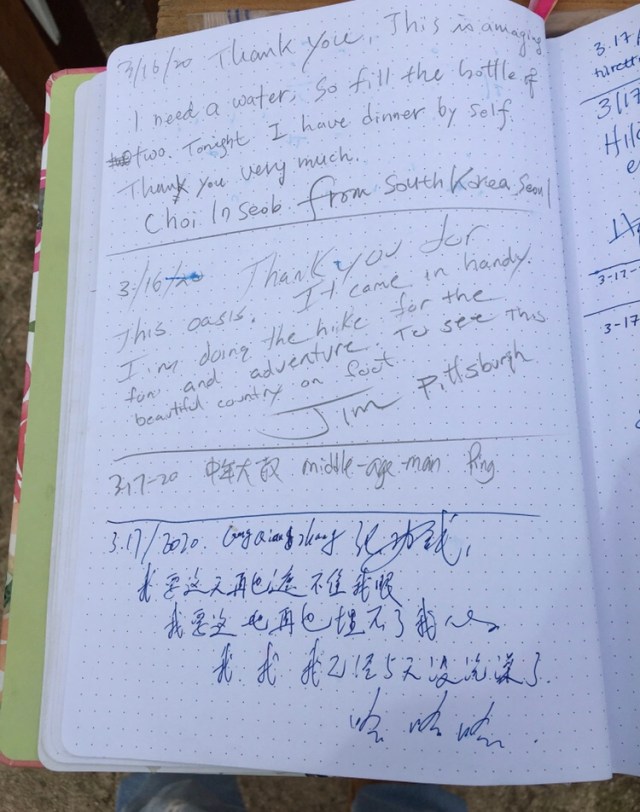 3/16/20 Thank you, This is amaging
I need a water, So fill the bottle of
two. Tonight I have dinner by self.
Thank you very much.
Choi In Seob. from South Korea. Seoul
3/16/20 Thank you for
This oasis. It came in handy.
I'm doing the hike for the
fun and adventure. To see this
beautiful country on foot
Jim Pittsburgh
3.17-20 中年大叔 middle-age-man Ping
3.17/2020.
我要这天再也遮不住我眼
我要这地再也埋不了我心
我 我 我已经5天没洗澡了
哈 哈 哈
3.17/
3/17
3-17-
3-17